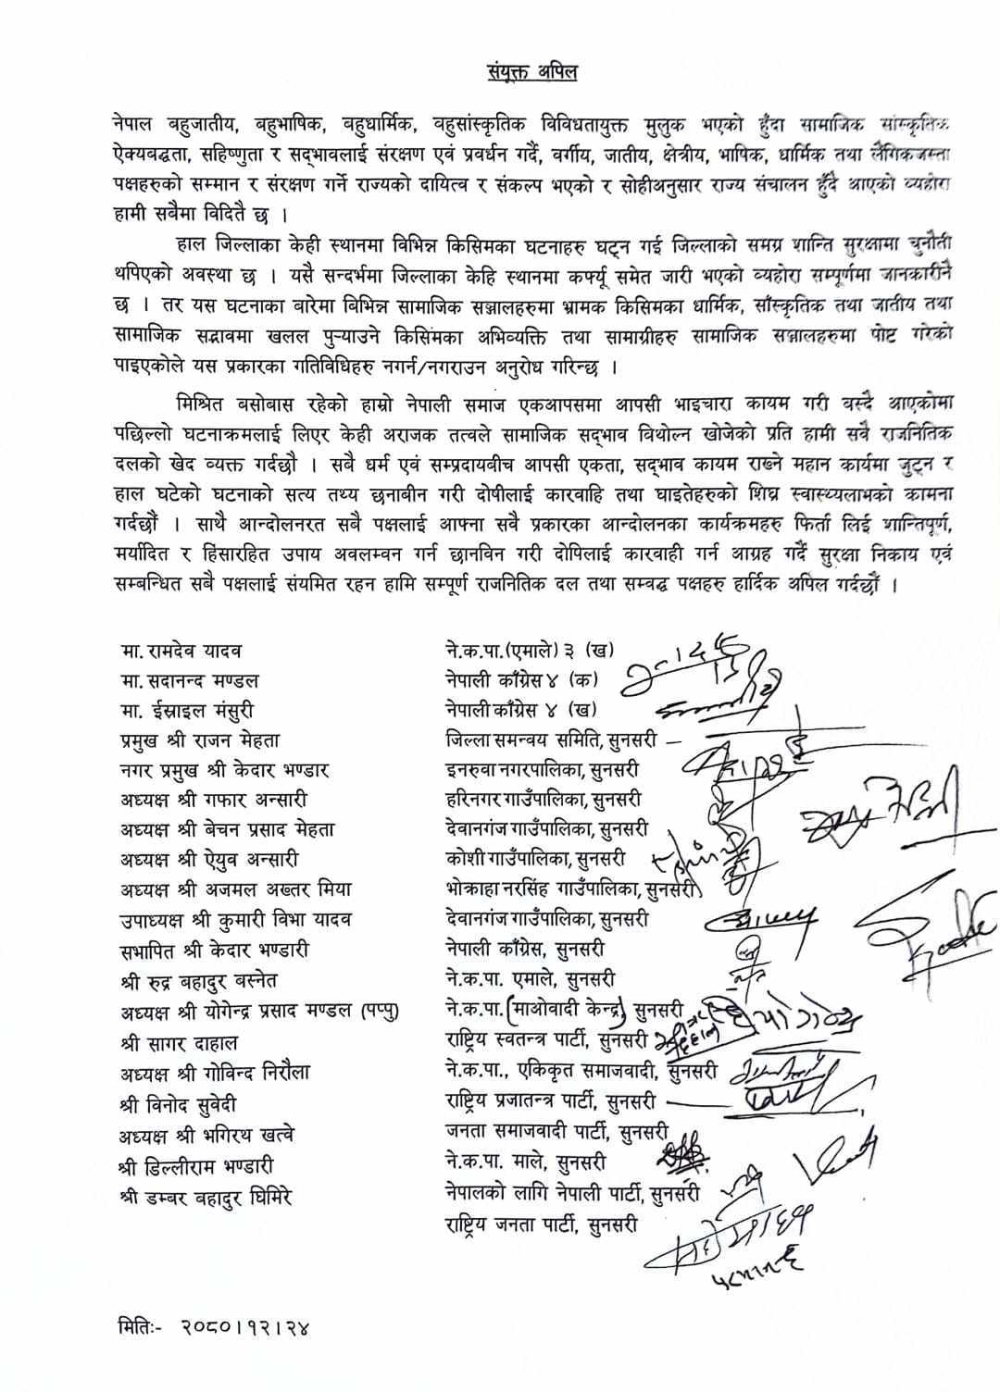 संयूक्त अपिल
नेपाल बहुजातीय, बहुभाषिक, बहुधार्मिक, वहुसांस्कृतिक विविधतायुक्त मुलुक भएको हुँदा सामाजिक सांस्कृतिक
ऐक्यबद्धता, सहिष्णुता र सद्भावलाई संरक्षण एवं प्रवर्धन गर्दै, वर्गीय, जातीय, क्षेत्रीय, भाषिक, धार्मिक तथा लैंगिकजस्ता
पक्षहरुको सम्मान र संरक्षण गर्ने राज्यको दायित्व र संकल्प भएको र सोहीअनुसार राज्य संचालन हुँदै आएको व्यहोरा
हामी सबैमा विदितै छ ।
हाल जिल्लाका केही स्थानमा विभिन्न किसिमका घटनाहरु घट्न गई जिल्लाको समग्र शान्ति सुरक्षामा चुनौती
थपिएको अवस्था छ । यसै सन्दर्भमा जिल्लाका केहि स्थानमा कर्फ्यू समेत जारी भएको व्यहोरा सम्पूर्णमा जानकारीनै
छ । तर यस घटनाका बारेमा विभिन्न सामाजिक सञ्जालहरुमा भ्रामक किसिमका धार्मिक, साँस्कृतिक तथा जातीय तथा
सामाजिक सद्भावमा खलल पुऱ्याउने किसिमका अभिव्यक्ति तथा सामाग्रीहरु सामाजिक सञ्जालहरुमा पोष्ट गरेको
पाइएकोले यस प्रकारका गतिविधिहरु नगर्न/नगराउन अनुरोध गरिन्छ ।
मिश्रित बसोबास रहेको हाम्रो नेपाली समाज एकआपसमा आपसी भाइचारा कायम गरी बस्दै आएकोमा
पछिल्लो घटनाक्रमलाई लिएर केही अराजक तत्वले सामाजिक सद्भाव विथोल्न खोजेको प्रति हामी सवै राजनितिक
दलको खेद व्यक्त गर्दछौ । सबै धर्म एवं सम्प्रदायबीच आपसी एकता, सद्भाव कायम राख्ने महान कार्यमा जुट्न र
हाल घटेको घटनाको सत्य तथ्य छनाबीन गरी दोषीलाई कारवाहि तथा घाइतेहरुको शिघ्र स्वास्थ्यलाभको कामना
गर्दछौं । साथै आन्दोलनरत सबै पक्षलाई आफ्ना सवै प्रकारका आन्दोलनका कार्यक्रमहरु फिर्ता लिई शान्तिपूर्ण,
मर्यादित र हिंसारहित उपाय अवलम्वन गर्न छानविन गरी दोपिलाई कारवाही गर्न आग्रह गर्दै सुरक्षा निकाय एवं
सम्बन्धित सबै पक्षलाई संयमित रहन हामि सम्पूर्ण राजनितिक दल तथा सम्वद्ध पक्षहरु हार्दिक अपिल गर्दछौं ।
मा. रामदेव यादव ने.क.पा.(एमाले) ३ (ख)
मा. सदानन्द मण्डल नेपाली काँग्रेस ४ (क)
मा. ईस्राइल मंसुरी नेपाली काँग्रेस ४ (ख)
प्रमुख श्री राजन मेहता जिल्ला समन्वय समिति, सुनसरी
नगर प्रमुख श्री केदार भण्डार इनरुवा नगरपालिका, सुनसरी
अध्यक्ष श्री गफार अन्सारी हरिनगर गाउँपालिका, सुनसरी
अध्यक्ष श्री बेचन प्रसाद मेहता देवानगंज गाउँपालिका, सुनसरी
अध्यक्ष श्री ऐयुव अन्सारी कोशी गाउँपालिका, सुनसरी
अध्यक्ष श्री अजमल अख्तर मिया भोक्राहा नरसिंह गाउँपालिका, सुनसरी
उपाध्यक्ष श्री कुमारी विभा यादव देवानगंज गाउँपालिका, सुनसरी
सभापित श्री केदार भण्डारी नेपाली काँग्रेस, सुनसरी
श्री रुद्र बहादुर बस्नेत ने.क.पा. एमाले, सुनसरी
अध्यक्ष श्री योगेन्द्र प्रसाद मण्डल (पप्पु) ने.क.पा. (माओवादी केन्द्र) सुनसरी
श्री सागर दाहाल राष्ट्रिय स्वतन्त्र पार्टी, सुनसरी
अध्यक्ष श्री गोविन्द निरौला ने.क.पा., एकिकृत समाजवादी, सुनसरी
श्री विनोद सुवेदी राष्ट्रिय प्रजातन्त्र पार्टी, सुनसरी
अध्यक्ष श्री भगिरथ खत्वे जनता समाजवादी पार्टी, सुनसरी
श्री डिल्लीराम भण्डारी ने.क.पा. माले, सुनसरी
श्री डम्बर बहादुर घिमिरे नेपालको लागि नेपाली पार्टी, सुनसरी
राष्ट्रिय जनता पार्टी, सुनसरी
मितिः- २०८०।१२।२४